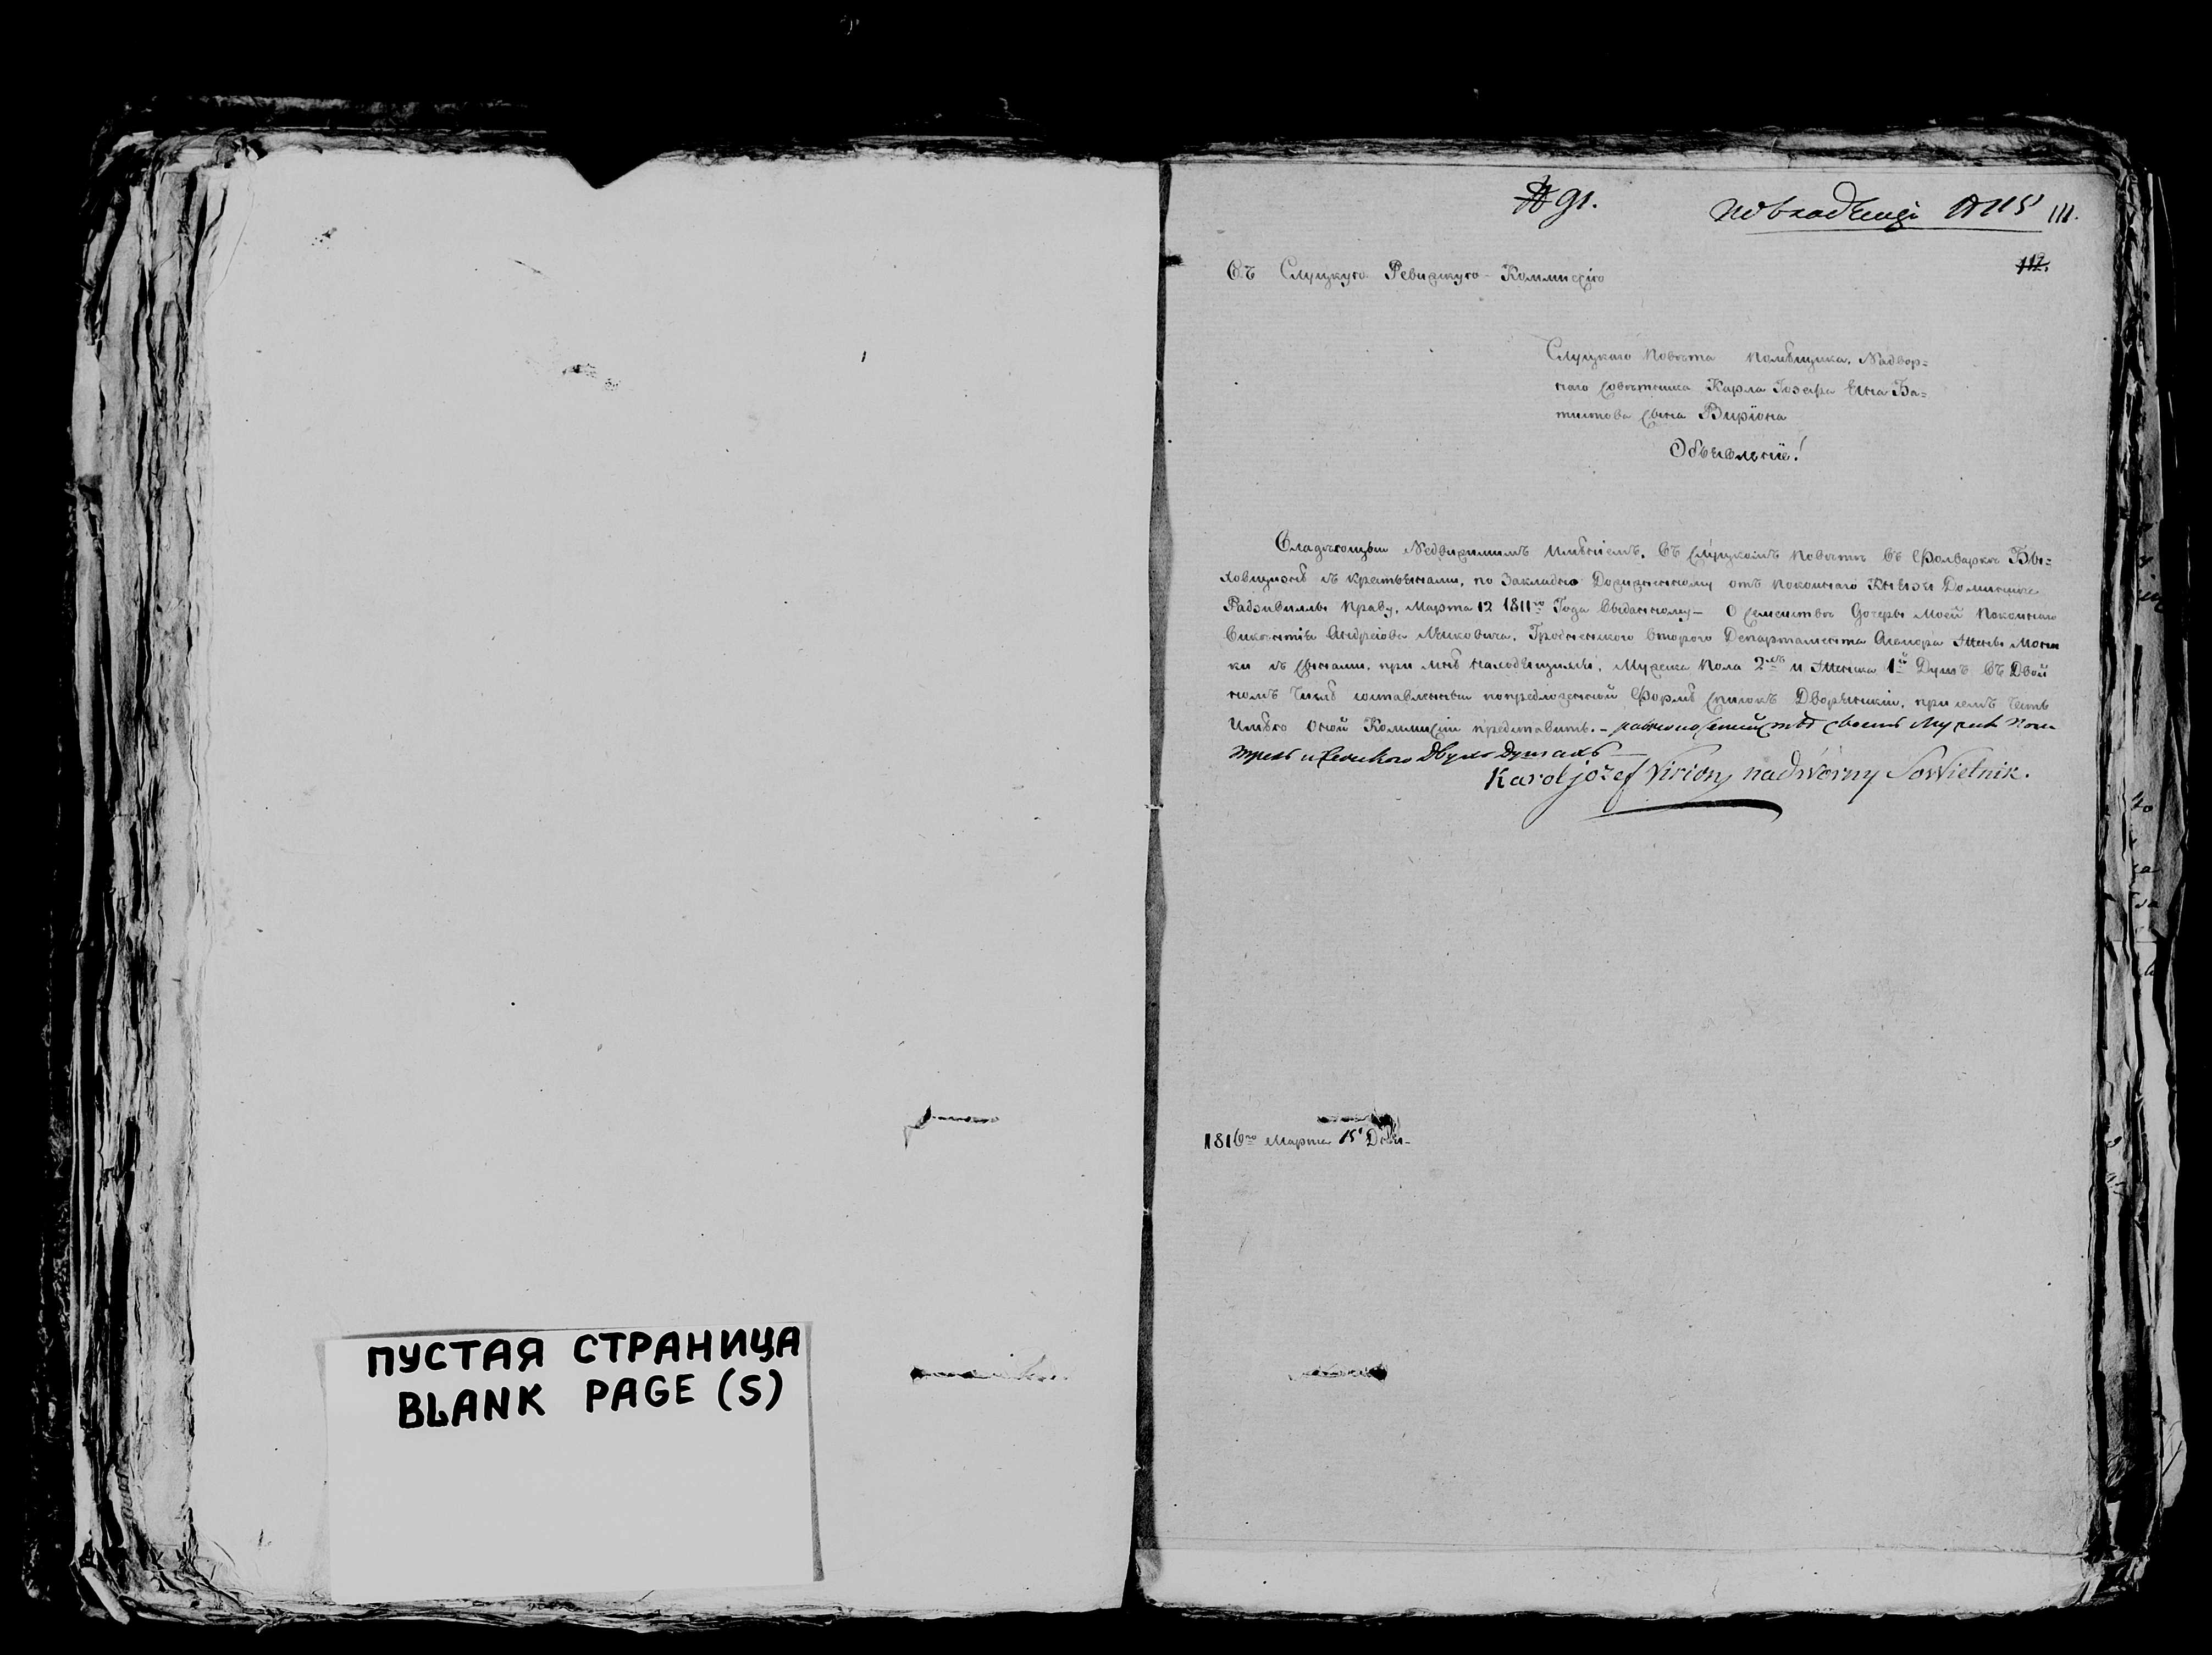 № 91.
№ 115
111.
112.
Въ Слуцкую Ревизкую Коммисію
Слуцкаго Повѣта Помѣщика, Надвор=
наго Совѣтника Карла Іозефа Яна Ба=
тистова сына Виріона
Объявленіе!
Владѣющый Недвижимымъ Имѣніемъ, Въ Слуцкомъ Повѣтѣ Въ Фольваркѣ
съ крестьянами, по Закладно отъ покойнаго Князя Доминика
Радзивилла праву, Марта 12 1811го Года Выданному — О семействѣ Дочеры Моей Покойнаго
Викентія Андреіова Гродненскаго Второго Департамента
съ сынами, при мнѣ находящимся, Мужска Пола 2хъ и Женска 1й Душъ Въ Двой
номъ Числѣ составленный попредложенной Формѣ Списокъ Дворянскій, при семъ Честь
Имѣю Оной Коммисіи представить. —
трехъ и Женского Двухъ Душахъ
Karol józef Virion nadwórny Sowietnik.
1816го Марта 15 Дня
ПУСТАЯ СТРАНИЦА
BLANK PAGE (S)